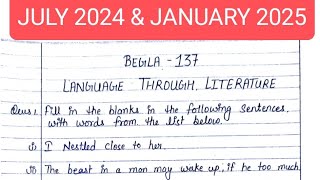 JULY 2024 & JANUARY 2025
BEGLA - 137
LANGUAGE THROUGH LITERATURE
Ques 1. Fill in the blanks in the following sentences,
with words from the list below.
i) I Nestled close to her.
ii) The beast in a man may wake up, if he too much